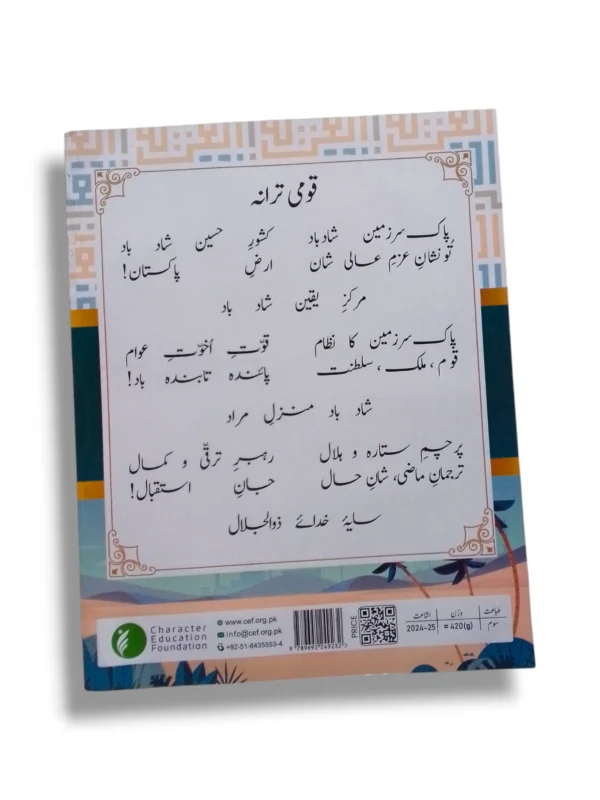 قومی ترانہ
پاک سرزمین شادباد کشورِ حسین شاد باد
تُو نشانِ عزمِ عالی شان ارضِ پاکستان!
مرکزِ یقین شاد باد
پاک سرزمین کا نظام قوّتِ اُخوّتِ عوام
قوم، ملک، سلطنت پائندہ تابندہ باد!
شاد باد منزلِ مراد
پرچمِ ستارہ و ہلال رہبرِ ترقّی و کمال
ترجمانِ ماضی، شانِ حال جانِ استقبال!
سایۂ خدائے ذوالجلال
Character
Education
Foundation
www.cef.org.pk
info@cef.org.pk
+92-51-8435553-4
9 789692 249232
PRICE
طباعت وزن اشاعت
سوم = 420(g) 2024-25